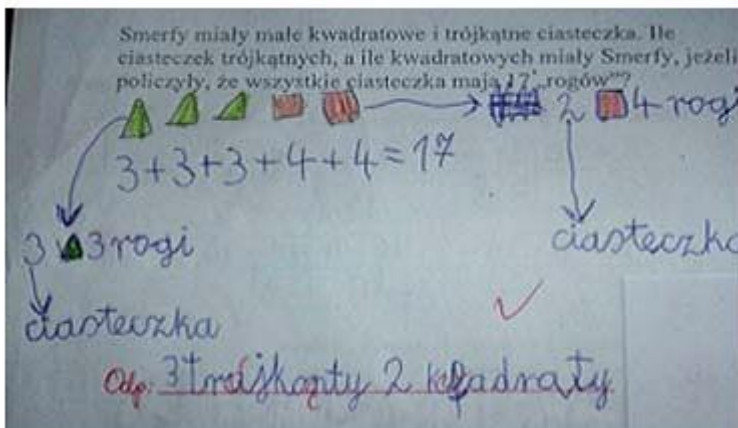 Smerfy miały małe kwadratowe i trójkątne ciasteczka. Ile
ciasteczek trójkątnych, a ile kwadratowych miały Smerfy, jeżeli
policzyły, że wszystkie ciasteczka mają 17 „rogów”?
2 4 rogi
3+3+3+4+4=17
3 3 rogi
ciasteczka
ciasteczka
Odp. 3 trójkąty 2 kwadraty